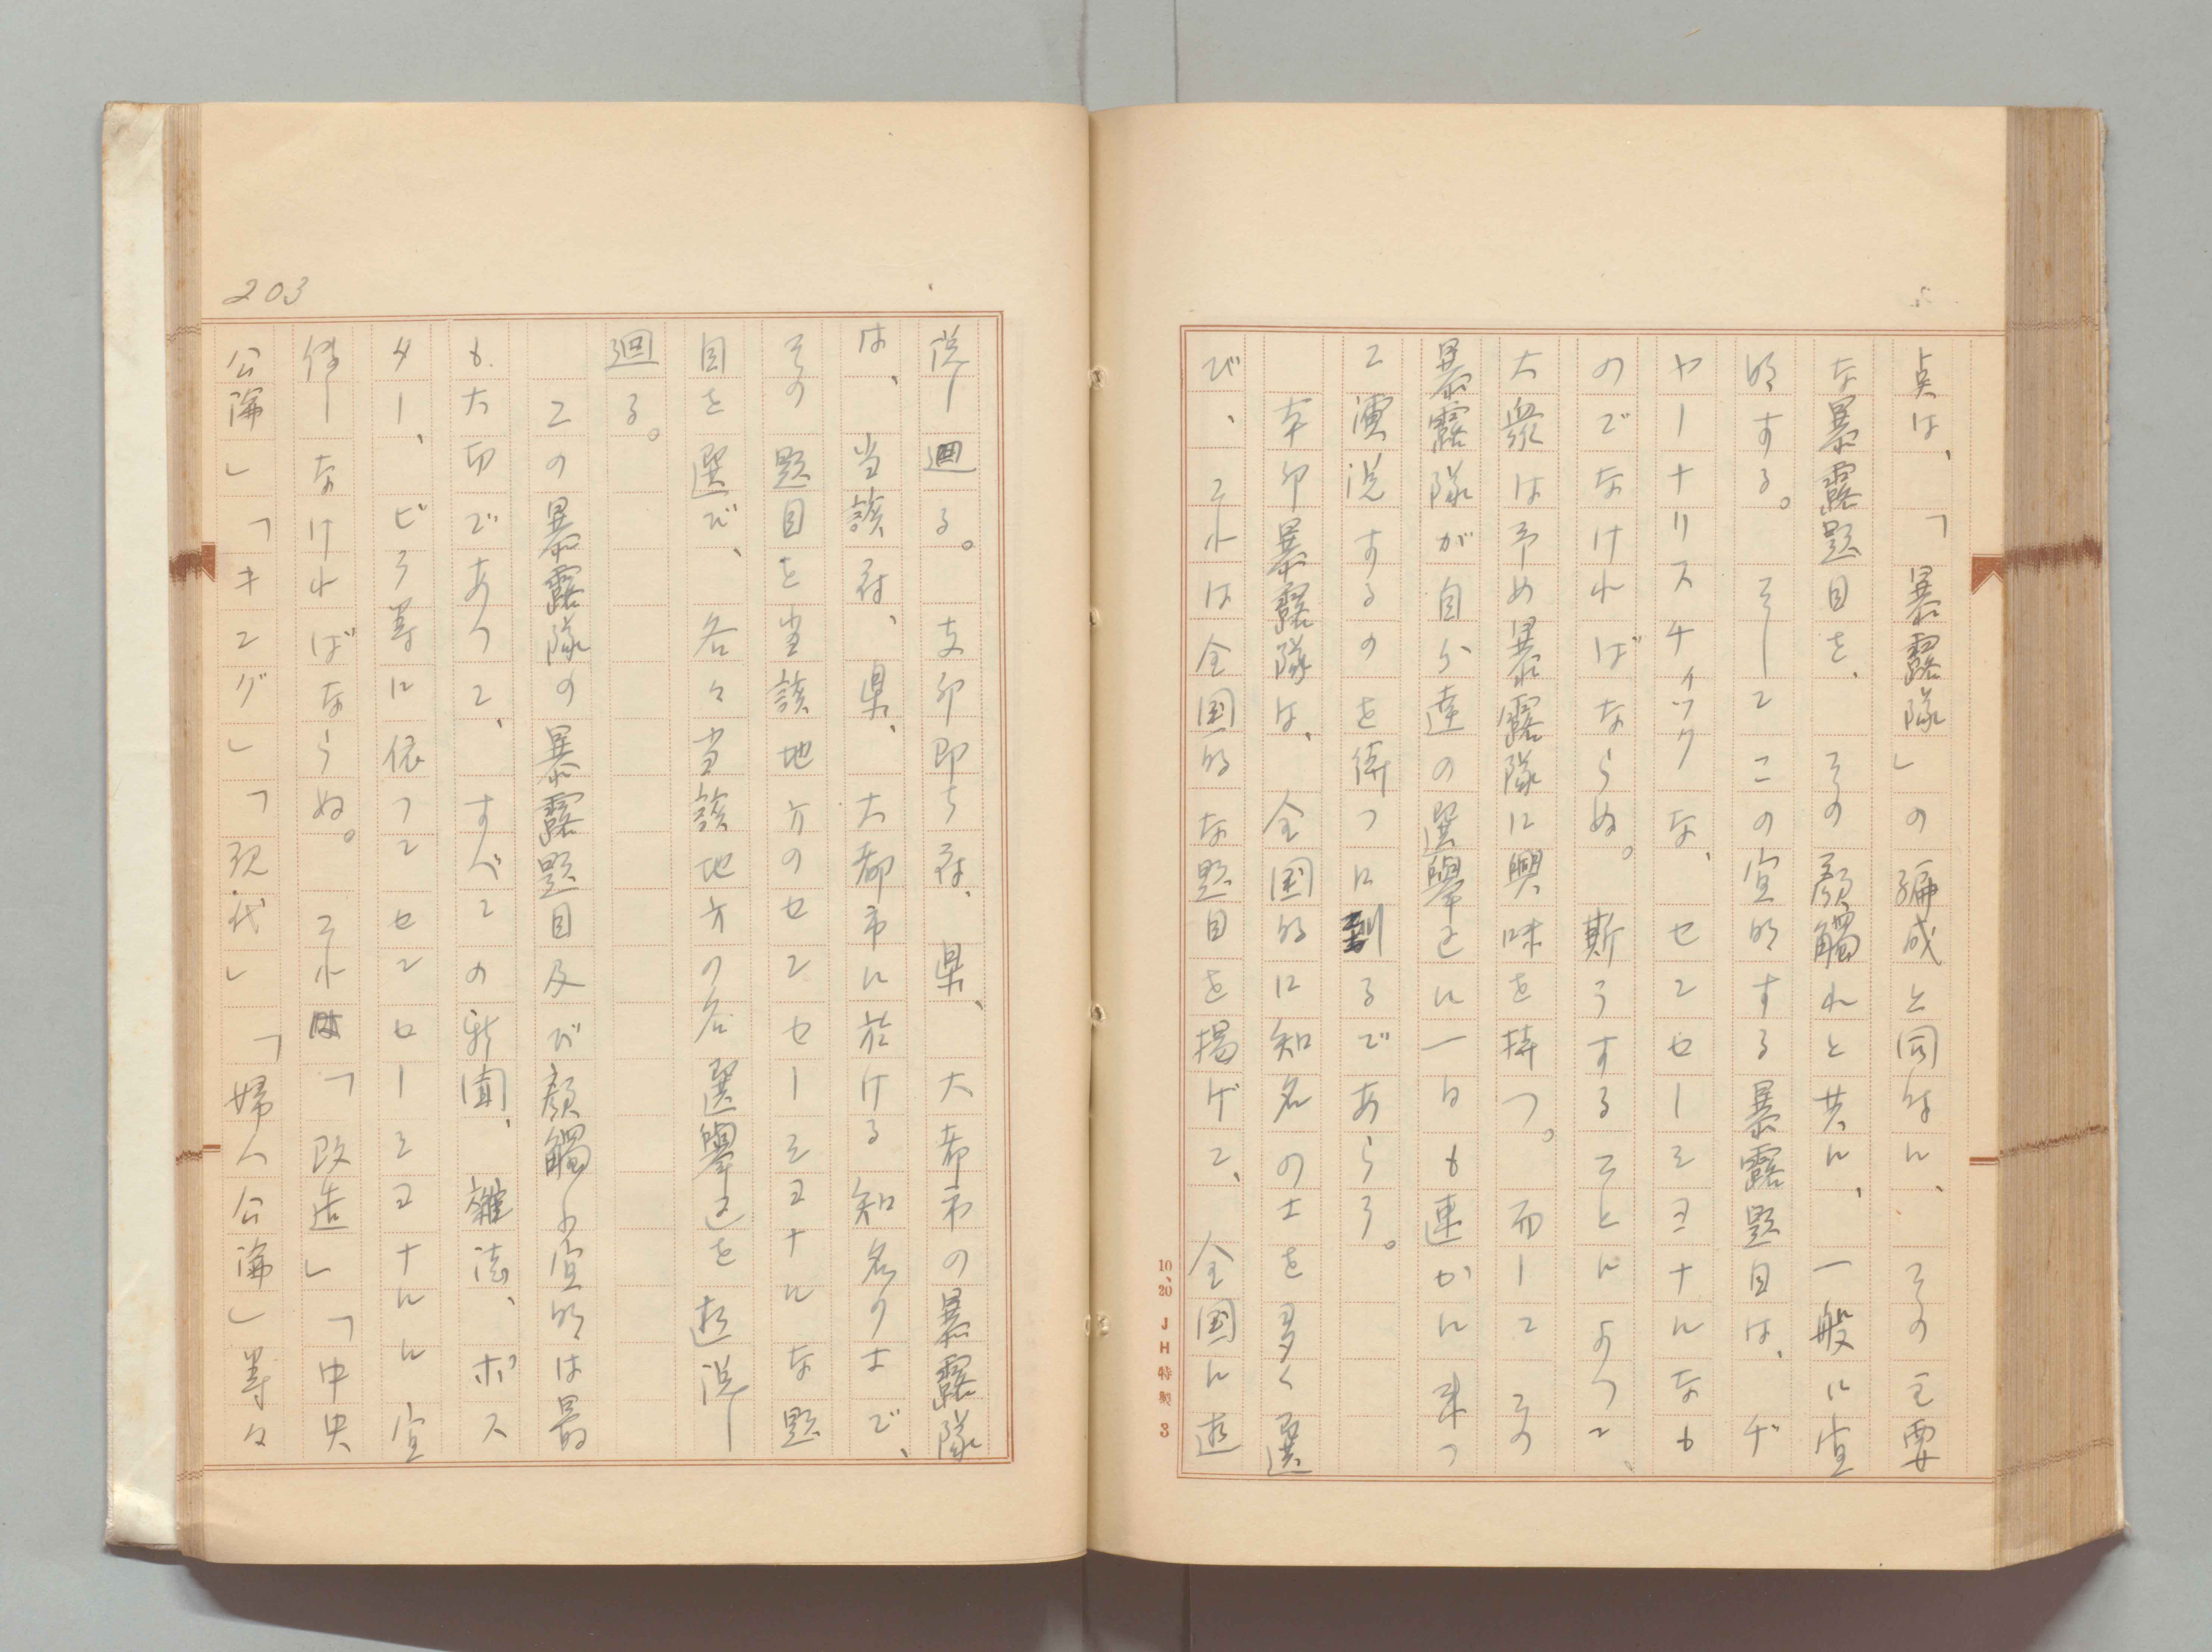 点は、「暴露隊」の編成と同時に、その主要
な暴露題目を、その顔觸れと共に、一般に宣
明する。そしてこの宣明する暴露題目は、ヂ
ヤーナリスチイツクな、センセーシヨナルなも
のでなければならぬ。斯うすることによつて、
大衆は予め暴露隊に興味を持つ。而してその
暴露隊が自分達の選擧区に一日も速かに来つ
て演説するのを待つに到るであらう。
本部暴露隊は、全国的に知名の士を多く選
び、それは全国的な題目を揚げて、全国に遊
説し廻る。支部即ち府、県、大都市の暴露隊
は、当該府、県、大都市に於ける知名の士で、
その題目を当該地方のセンセーシヨナルな題
目を選び、各々当該地方の各選擧区を遊説し
廻る。
この暴露隊の暴露題目及び顔觸れ宣明は最
も大切であつて、すべての新聞、雜誌、ポス
ター、ビラ等に依つてセンセーシヨナルに宣
傳しなければならぬ。それは「改造」「中央
公論」「キング」「現代」「婦人公論」等々
203
10、20 JH特製 3